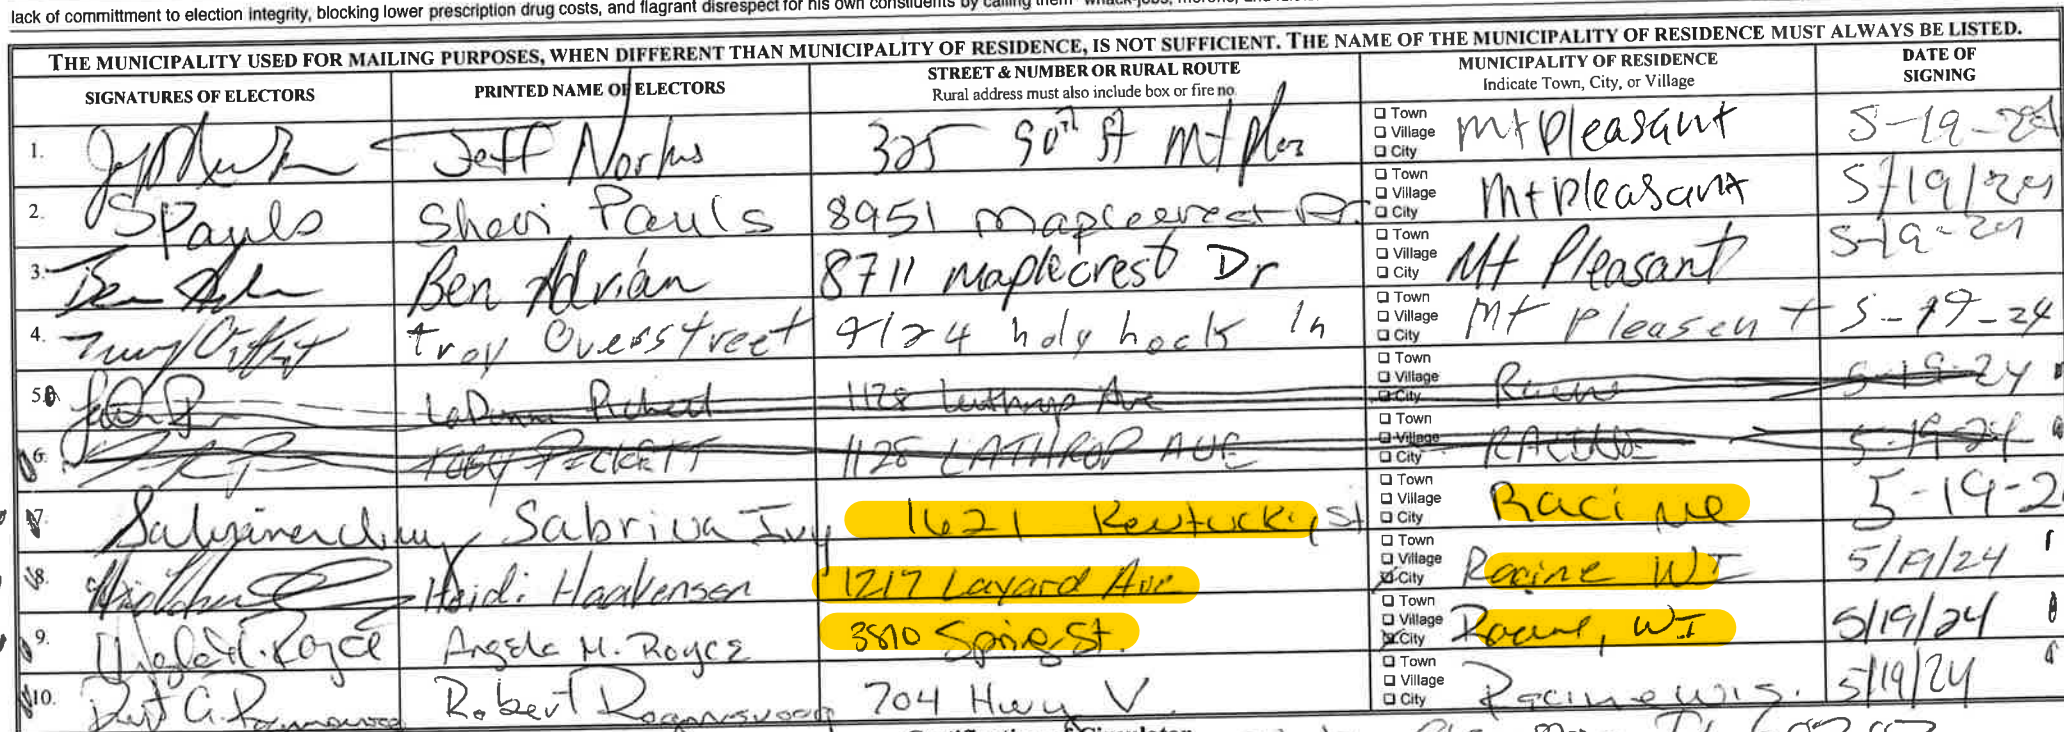 lack of commitment to election integrity, blocking lower prescription drug costs, and flagrant disrespect for his own constituents by calling them
THE MUNICIPALITY USED FOR MAILING PURPOSES, WHEN DIFFERENT THAN MUNICIPALITY OF RESIDENCE, IS NOT SUFFICIENT. THE NAME OF THE MUNICIPALITY OF RESIDENCE MUST ALWAYS BE LISTED.
SIGNATURES OF ELECTORS PRINTED NAME OF ELECTORS STREET & NUMBER OR RURAL ROUTE MUNICIPALITY OF RESIDENCE DATE OF SIGNING
Rural address must also include box or fire no. Indicate Town, City, or Village
1. Jeff 325 90th St Mt Town Village City Mt Pleasant 5-19-24
2. S Pauls Sheri Pauls 8951 Maplecrest Dr Town Village City Mt Pleasant 5/19/24
3. Ben Adrian 8711 Maplecrest Dr Town Village City Mt Pleasant 5-19-24
4. Troy Overstreet 9124 holy hock ln Town Village City Mt Pleasent 5-19-24
5. 1128 Lathrop Ave Town Village City Racine 5-19-24
6. TOBY PICKETT 1128 LATHROP AVE Town Village City RACINE 5-19-24
7. Sabrina Ivy 1621 Kentucky St Town Village City Racine 5-19-2
8. Heidi Haakenson 1217 Layard Ave Town Village City Racine WI 5/19/24
9. Angela M. Royce 3810 Spring St. Town Village City Racine, WI 5/19/24
10. Robert 704 Hwy V Town Village City Racine wis. 5/19/24